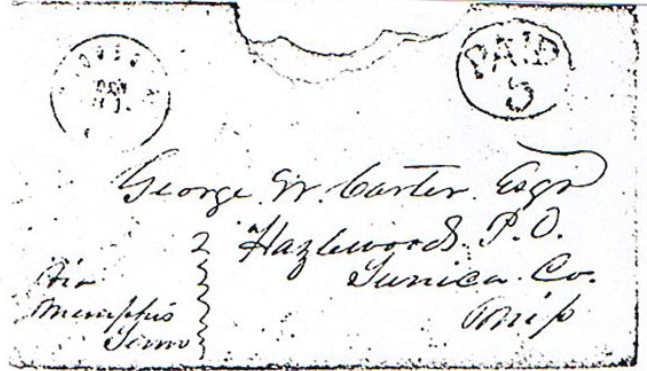 PAID
5
George W. Carter Esqr
Hazlewood P.O.
Tunica Co.
Miſs
Via
Memphis
Tenn